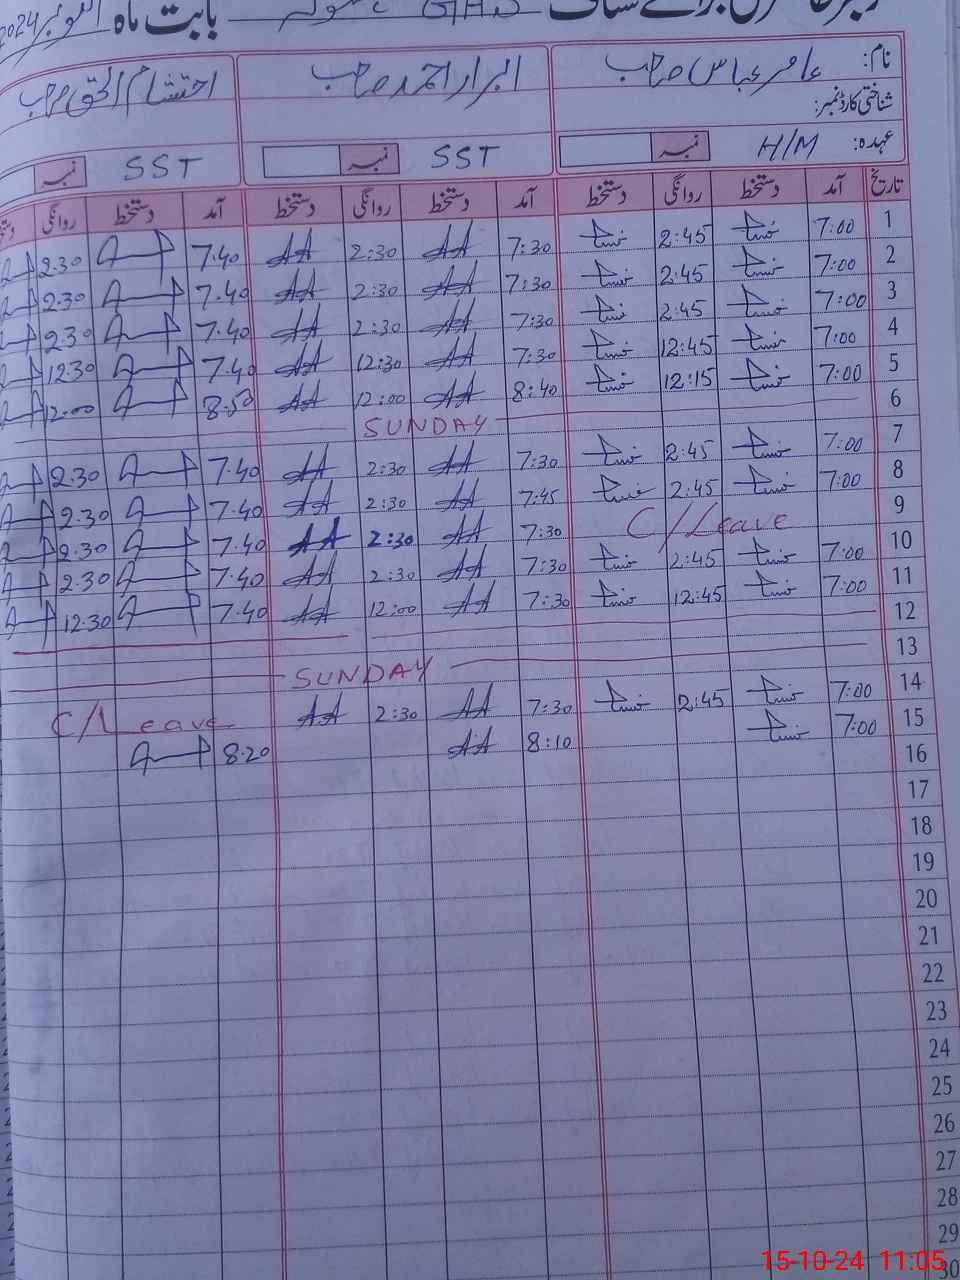 بابت ماہ اکتوبر 2024
نام: عامر عباس صاحب ابرار احمد صاحب احتشام الحق صاحب
شناختی کارڈ نمبر:
عہدہ: H/M نمبر SST نمبر SST نمبر
تاریخ آمد دستخط روانگی دستخط آمد دستخط روانگی دستخط آمد دستخط روانگی
1 7:00 2:45 7:30 AA 2:30 AA 7.40 2.30
2 7:00 2:45 7:30 AA 2:30 AA 7.40 2.30
3 7:00 2:45 7:30 AA 2:30 AA 7.40 2.30
4 7:00 12:45 7:30 AA 12:30 AA 7.40 12.30
5 7:00 12:15 8:40 AA 12:00 AA 8.50 12.00
6 SUNDAY
7 7:00 2:45 7:30 AA 2:30 AA 7.40 2.30
8 7:00 2:45 7:45 AA 2:30 AA 7.40 2.30
9 C/Leave 7:30 AA 2:30 AA 7.40 2.30
10 7:00 2:45 7:30 AA 2:30 AA 7.40 2.30
11 7:00 12:45 7:30 AA 12:00 AA 7.40 12.30
12
13 SUNDAY
14 7:00 2:45 7:30 AA 2:30 AA C/Leave
15 7:00 8:10 AA 8.20
16
17
18
19
20
21
22
23
24
25
26
27
28
29
30
15-10-24 11:05